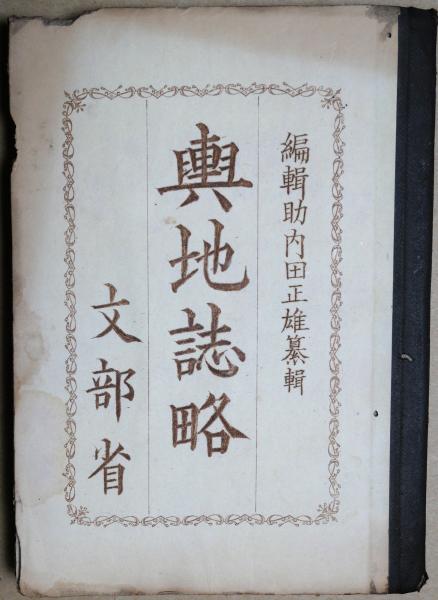 編輯助内田正雄纂輯
輿地誌略
文部省